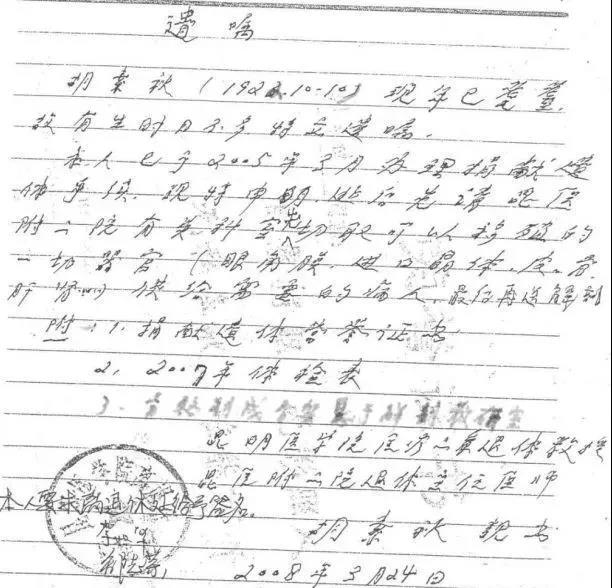 遗嘱
胡素秋(1922.10.10)现年已耄耋,
故有生时日不多特立遗嘱.
本人已于2005年3月办理捐献遗
体手续.现特申明.死后先请昆医
附二院有关科室先切取可以移殖的
一切器官(眼角膜.进口晶体.皮.骨.
肝肾)供给需要的病人.最后再送解剖
附:1.捐献遗体荣誉证书
2.2007年体检表
3.
昆明医学院医疗二系退休教授
昆医附二院退休主任医师
本人要求 给予签名.
胡素秋亲书
2008年3月24日